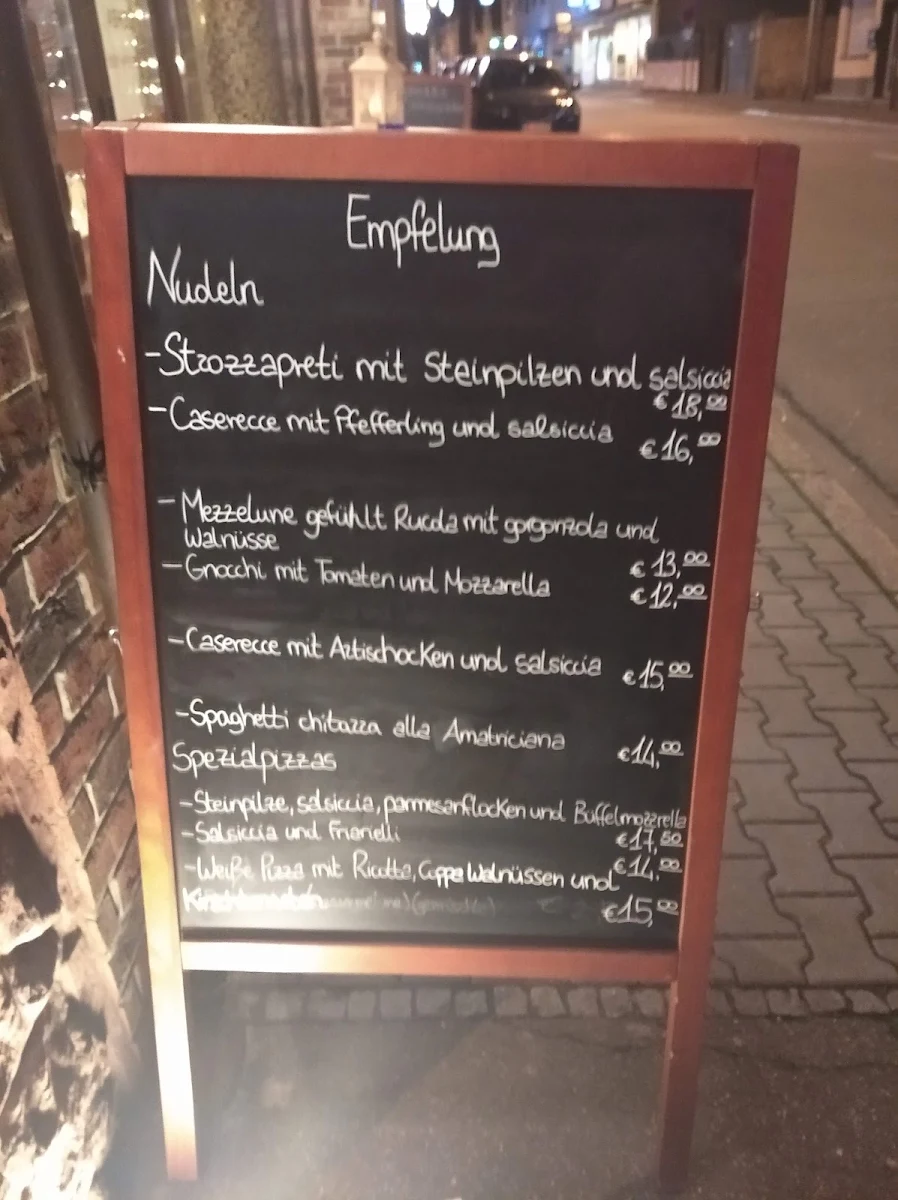 Empfelung
Nudeln
-Strozzapreti mit Steinpilzen und salsiccia
€ 18,00
-Caserecce mit Pfefferling und salsiccia
€ 16,00
- Mezzelune gefühlt Rucola mit gorgonzola und
Walnüsse
€ 13,00
-Gnocchi mit Tomaten und Mozzarella
€ 12,00
-Caserecce mit Artischocken und salsiccia
€ 15,00
-Spaghetti chitarra alla Amatriciana
€ 14,00
Spezialpizzas
-Steinpilze, salsiccia, parmesanflocken und Büffelmozzerella
€ 17,50
-Salsiccia und Friarielli
€ 14,00
-Weiße Pizza mit Ricotta, Coppa Walnüssen und
€ 15,00